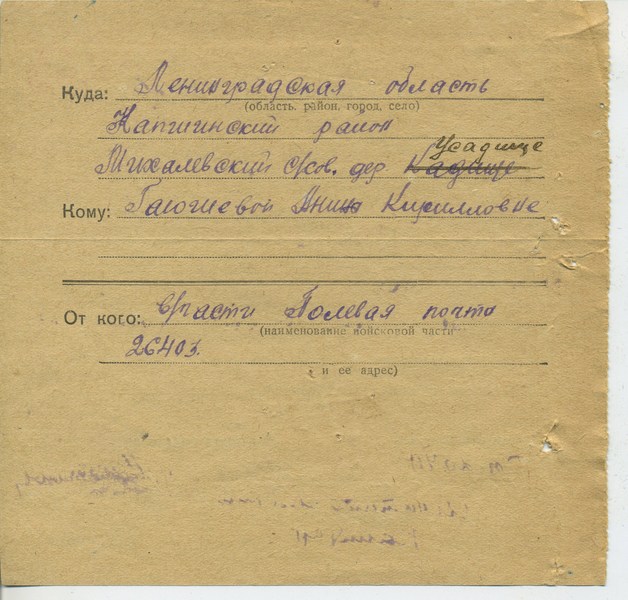 Куда: Ленинградская область
(область, район, город, село)
Капшинский район
Усадище
Михалевский с/сов. дер. Кадище
Кому: Анне Кирилловне
От кого: в/части Полевая почта
(наименование войсковой части
26403.
и ее адрес)